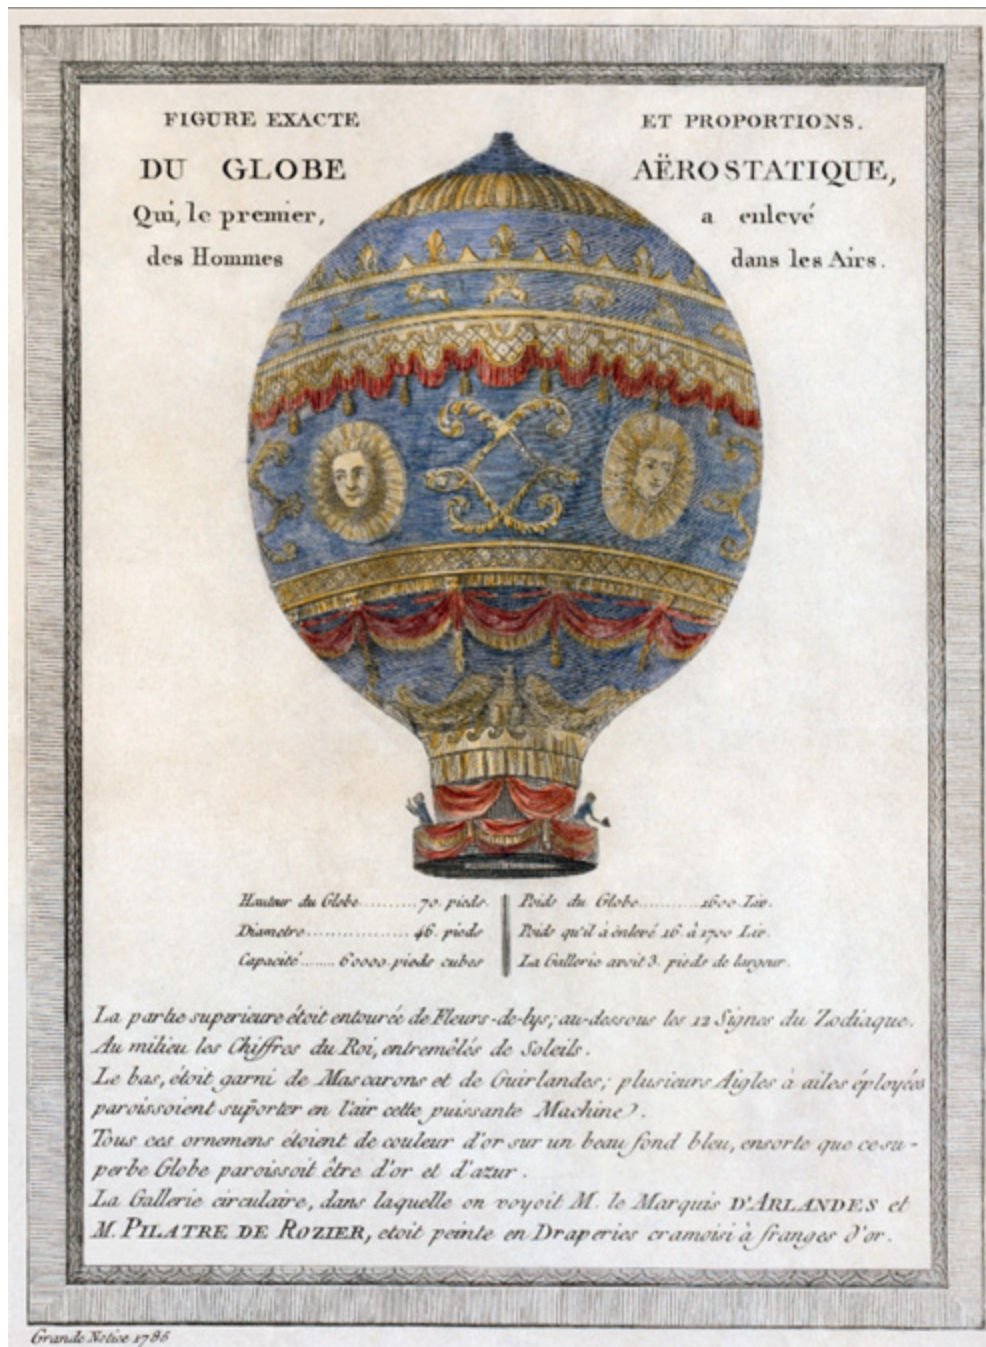 FIGURE EXACTE ET PROPORTIONS.
DU GLOBE AËROSTATIQUE,
Qui, le premier, a enlevé
des Hommes dans les Airs.
Hauteur du Globe..........70. pieds.
Diametre................46. pieds
Capacité.......60000. pieds cubes
Poids du Globe..........1600. Liv.
Poids qu'il à enlevé 16. à 1700 Liv.
La Gallerie avoit 3. pieds de largeur.
La partie superieure étoit entourée de Fleurs-de-lys; au-dessous les 12 Signes du Zodiaque.
Au milieu les Chiffres du Roi, entremêlés de Soleils.
Le bas, étoit garni de Mascarons et de Guirlandes; plusieurs Aigles à ailes éployées
paroissoient suporter en l'air cette puissante Machine.
Tous ces ornemens étoient de couleur d'or sur un beau fond bleu, ensorte que ce su-
perbe Globe paroissoit être d'or et d'azur.
La Gallerie circulaire, dans laquelle on voyoit M. le Marquis D'ARLANDES et
M. PILATRE DE ROZIER, etoit peinte en Draperies cramoisi à franges d'or.
Grande Notice 1786